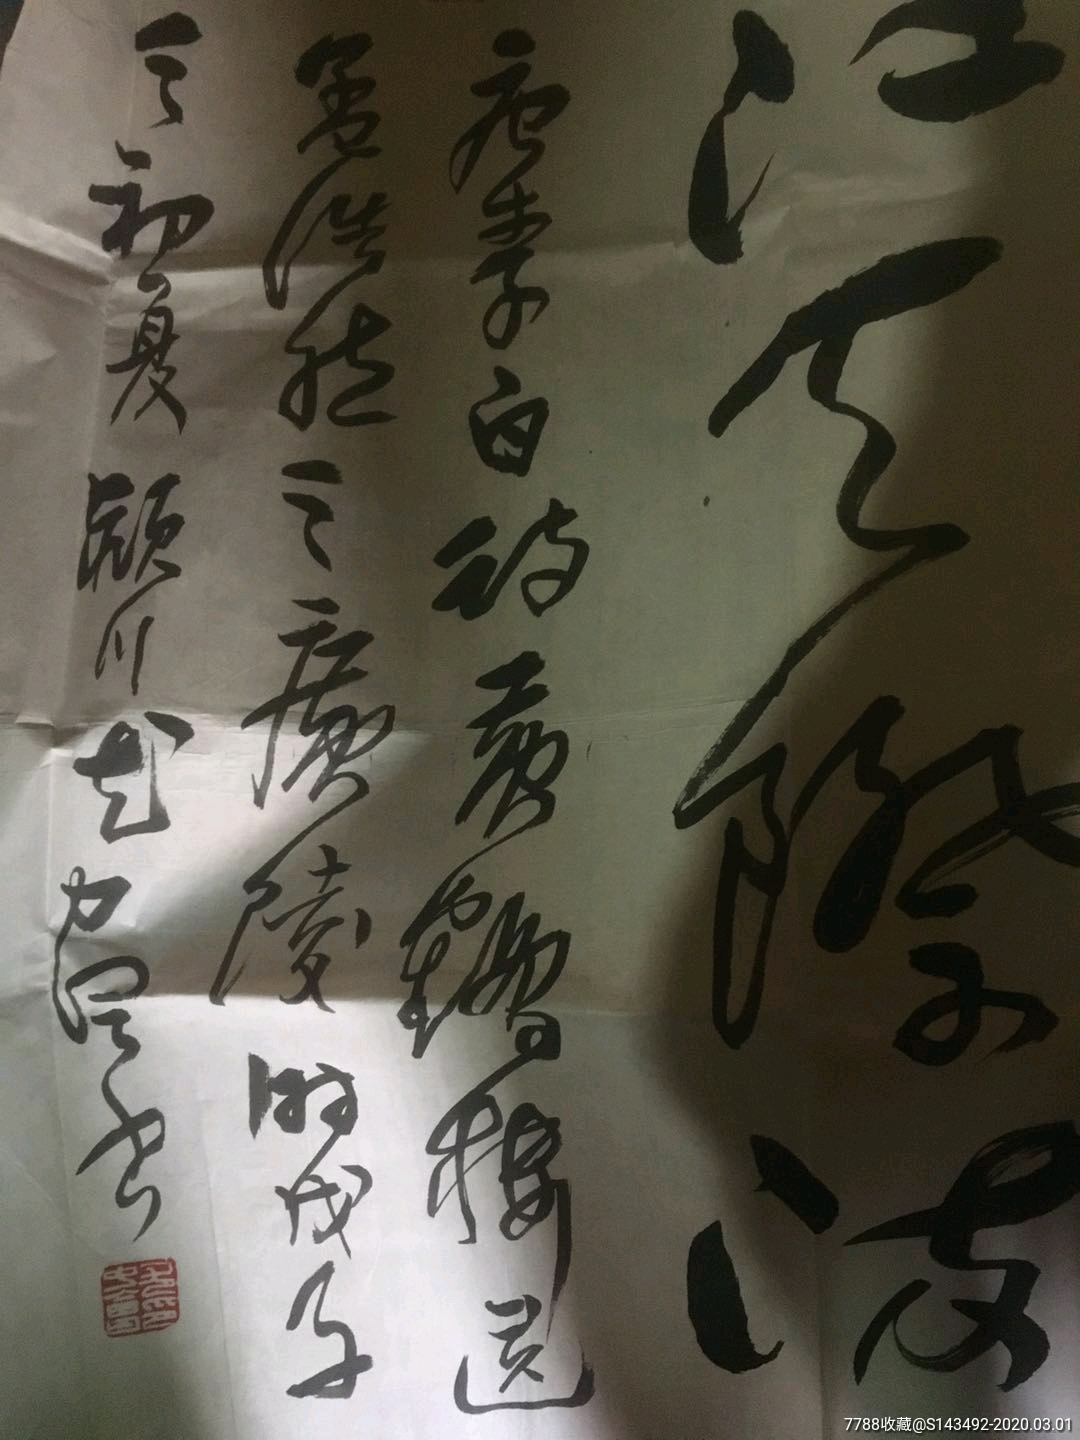 江天際流
唐李白詩黃鶴樓送
孟浩然之廣陵 時戊子
之初夏 潁川
書
7788收藏@S143492-2020.03.01